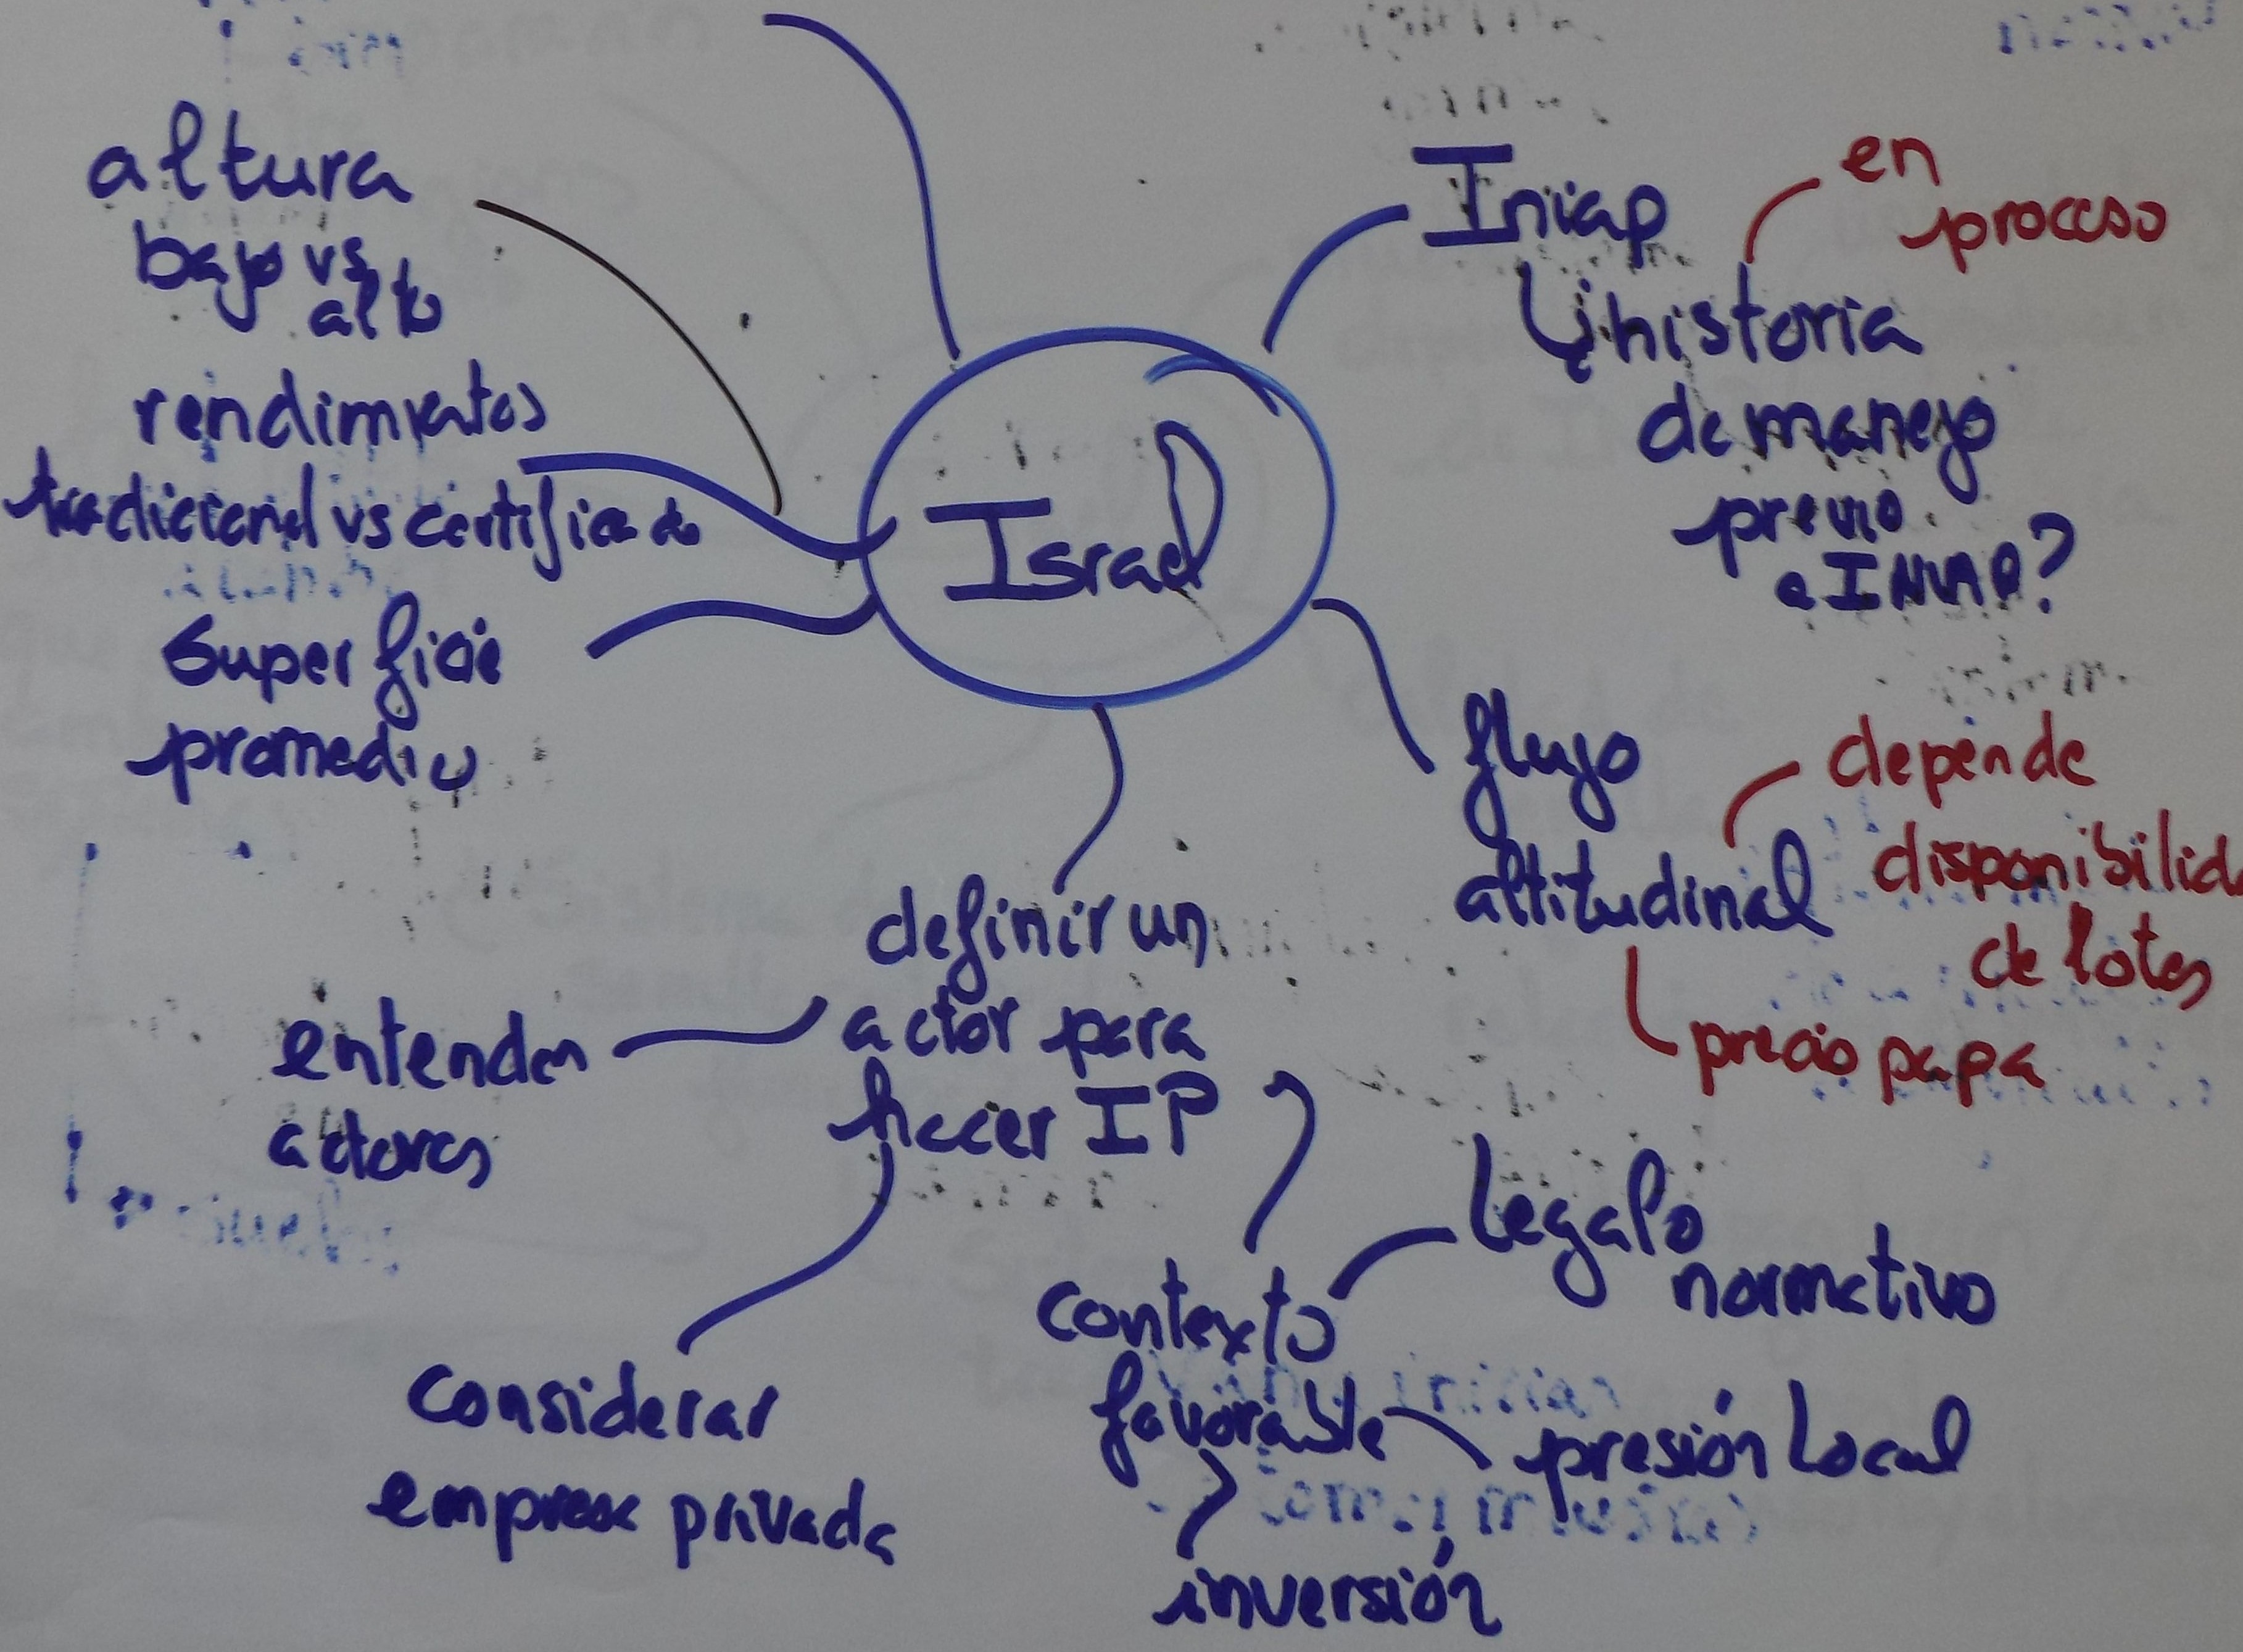 altura
bajo vs
alto
rendimientos
tradicional vs certificado
superficie
promedio
Israel
Iniap
en
proceso
historia
de manejo
previo
a INIAP?
flujo
altitudinal
depende
disponibilid
de lotes
precio papa
definir un
actor para
hacer IP
entender
actores
considerar
empresa privada
contexto
favorable
legal o
normativo
presión local
inversión